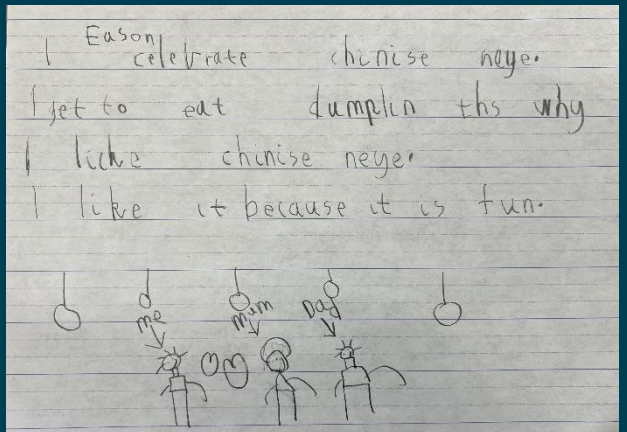 Eason
I celebrate chinise neye.
I get to eat dumplin ths why
I licke chinise neye.
I like it because it is fun.
me Mum Dad